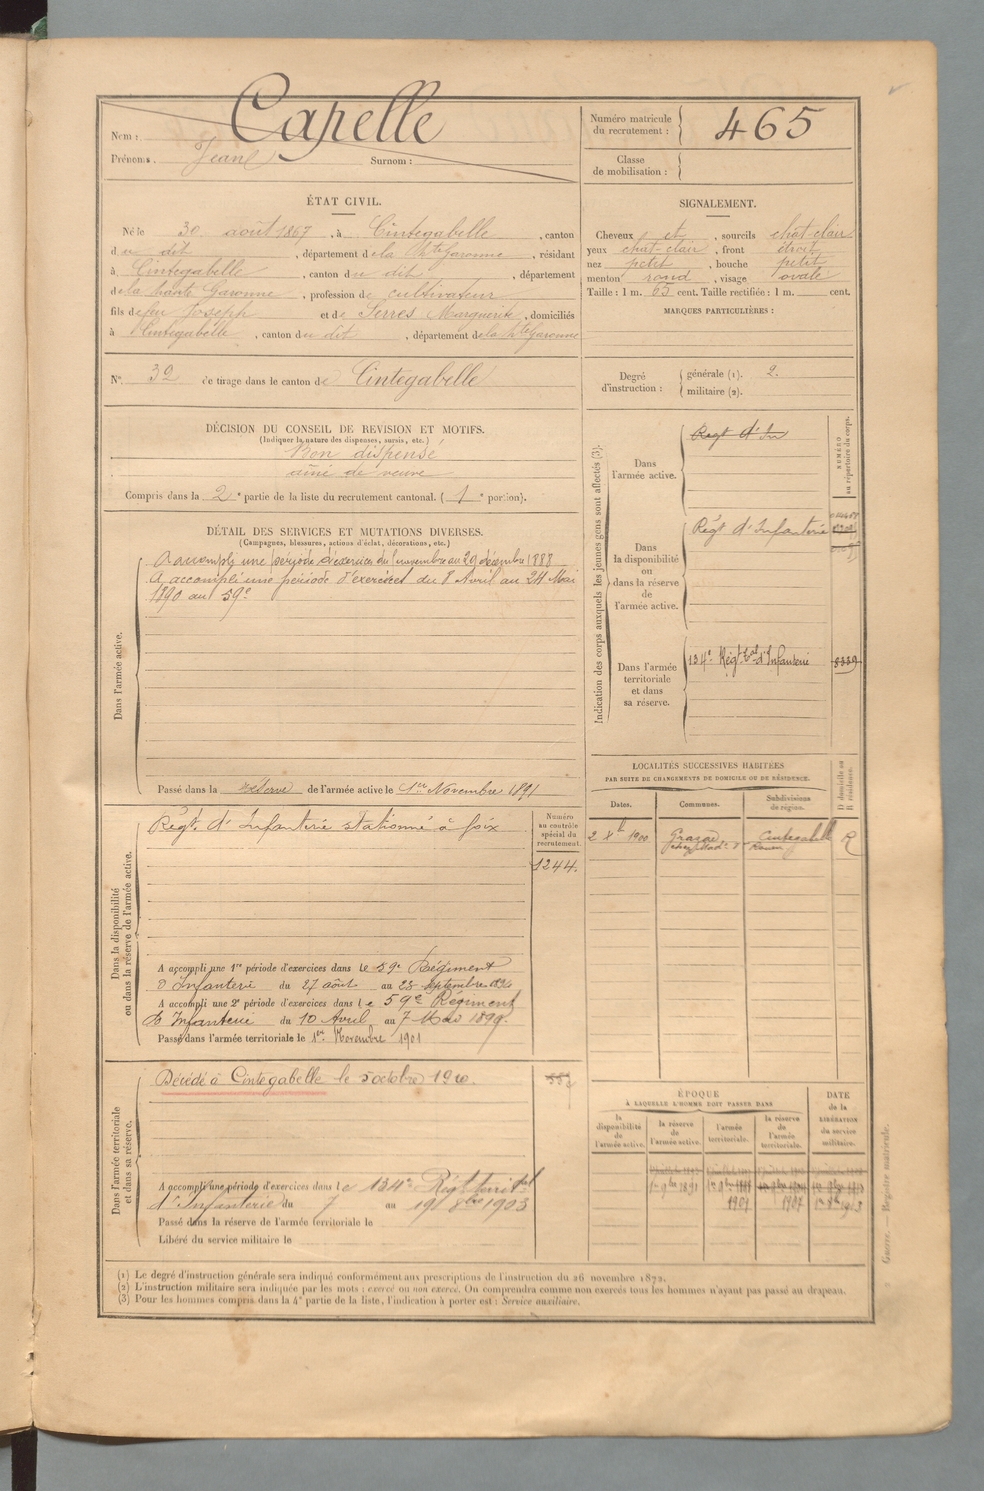 Nom : Capelle
Prénoms. Jean Surnom :
Numéro matricule du recrutement : 465
Classe de mobilisation :
ÉTAT CIVIL.
Né le 30 août 1867, à Cintegabelle, canton
du dit, département de la Hte Garonne, résidant
à Cintegabelle, canton du dit, département
de la haute Garonne, profession de cultivateur
fils de feu Joseph et de Serres Marguerite, domiciliés
à Cintegabelle, canton du dit, département de la Hte Garonne
N° 32 de tirage dans le canton de Cintegabelle
DÉCISION DU CONSEIL DE REVISION ET MOTIFS.
(Indiquer la nature des dispenses, sursis, etc.)
Bon dispensé
aîné de veuve
Compris dans la 2e partie de la liste du recrutement cantonal. (1e portion).
SIGNALEMENT.
Cheveux et, sourcils chat-clair
yeux chat-clair, front étroit
nez petit, bouche petit
menton rond, visage ovale
Taille : 1 m. 65 cent. Taille rectifiée : 1 m. cent.
MARQUES PARTICULIÈRES :
Degré d'instruction :
générale (1). 2.
militaire (2).
DÉTAIL DES SERVICES ET MUTATIONS DIVERSES.
(Campagnes, blessures, actions d'éclat, décorations, etc.)
Dans l'armée active.
A accompli une période d'exercices du 1 novembre au 29 décembre 1888
A accompli une période d'exercices du 8 Avril au 24 Mai
1890 au 59e
Passé dans la réserve de l'armée active le 1er Novembre 1891
Indication des corps auxquels les jeunes gens sont affectés (3).
NUMÉRO au répertoire du corps.
Dans l'armée active.
Regt d'In
Dans la disponibilité ou dans la réserve de l'armée active.
Régt d'Infanterie
Dans l'armée territoriale et dans sa réserve.
134e Régt Tal d'Infanterie
8339
Dans la disponibilité ou dans la réserve de l'armée active.
Régt d'Infanterie stationné à Foix
Numéro au contrôle spécial du recrutement.
1244.
A accompli une 1re période d'exercices dans le 59e Régiment
d'Infanterie du 27 août au 23 septembre
A accompli une 2e période d'exercices dans le 59e Régiment
d'Infanterie du 10 Avril au 7 Mai 1899.
Passé dans l'armée territoriale le 1er Novembre 1901
LOCALITÉS SUCCESSIVES HABITÉES
PAR SUITE DE CHANGEMENTS DE DOMICILE OU DE RÉSIDENCE.
D domicile ou R résidence.
Dates. Communes. Subdivisions de région.
2 Xbre 1900 Cintegabelle R
Dans l'armée territoriale et dans sa réserve.
Décédé à Cintegabelle le 5 octobre 1910.
A accompli une période d'exercices dans le 134e Régt territal
d'Infanterie du 7 au 19 8bre 1903
Passé dans la réserve de l'armée territoriale le
Libéré du service militaire le
ÉPOQUE
À LAQUELLE L'HOMME DOIT PASSER DANS
la disponibilité de l'armée active.
la réserve de l'armée active.
l'armée territoriale.
la réserve de l'armée territoriale.
DATE de la LIBÉRATION du service militaire.
1er 9bre 1891
1901 1907
Guerre. — Registre matricule.
(1) Le degré d'instruction générale sera indiqué conformément aux prescriptions de l'instruction du 26 novembre 1872.
(2) L'instruction militaire sera indiquée par les mots : exercé ou non exercé. On comprendra comme non exercés tous les hommes n'ayant pas passé au drapeau.
(3) Pour les hommes compris dans la 4e partie de la liste, l'indication à porter est : Service auxiliaire.